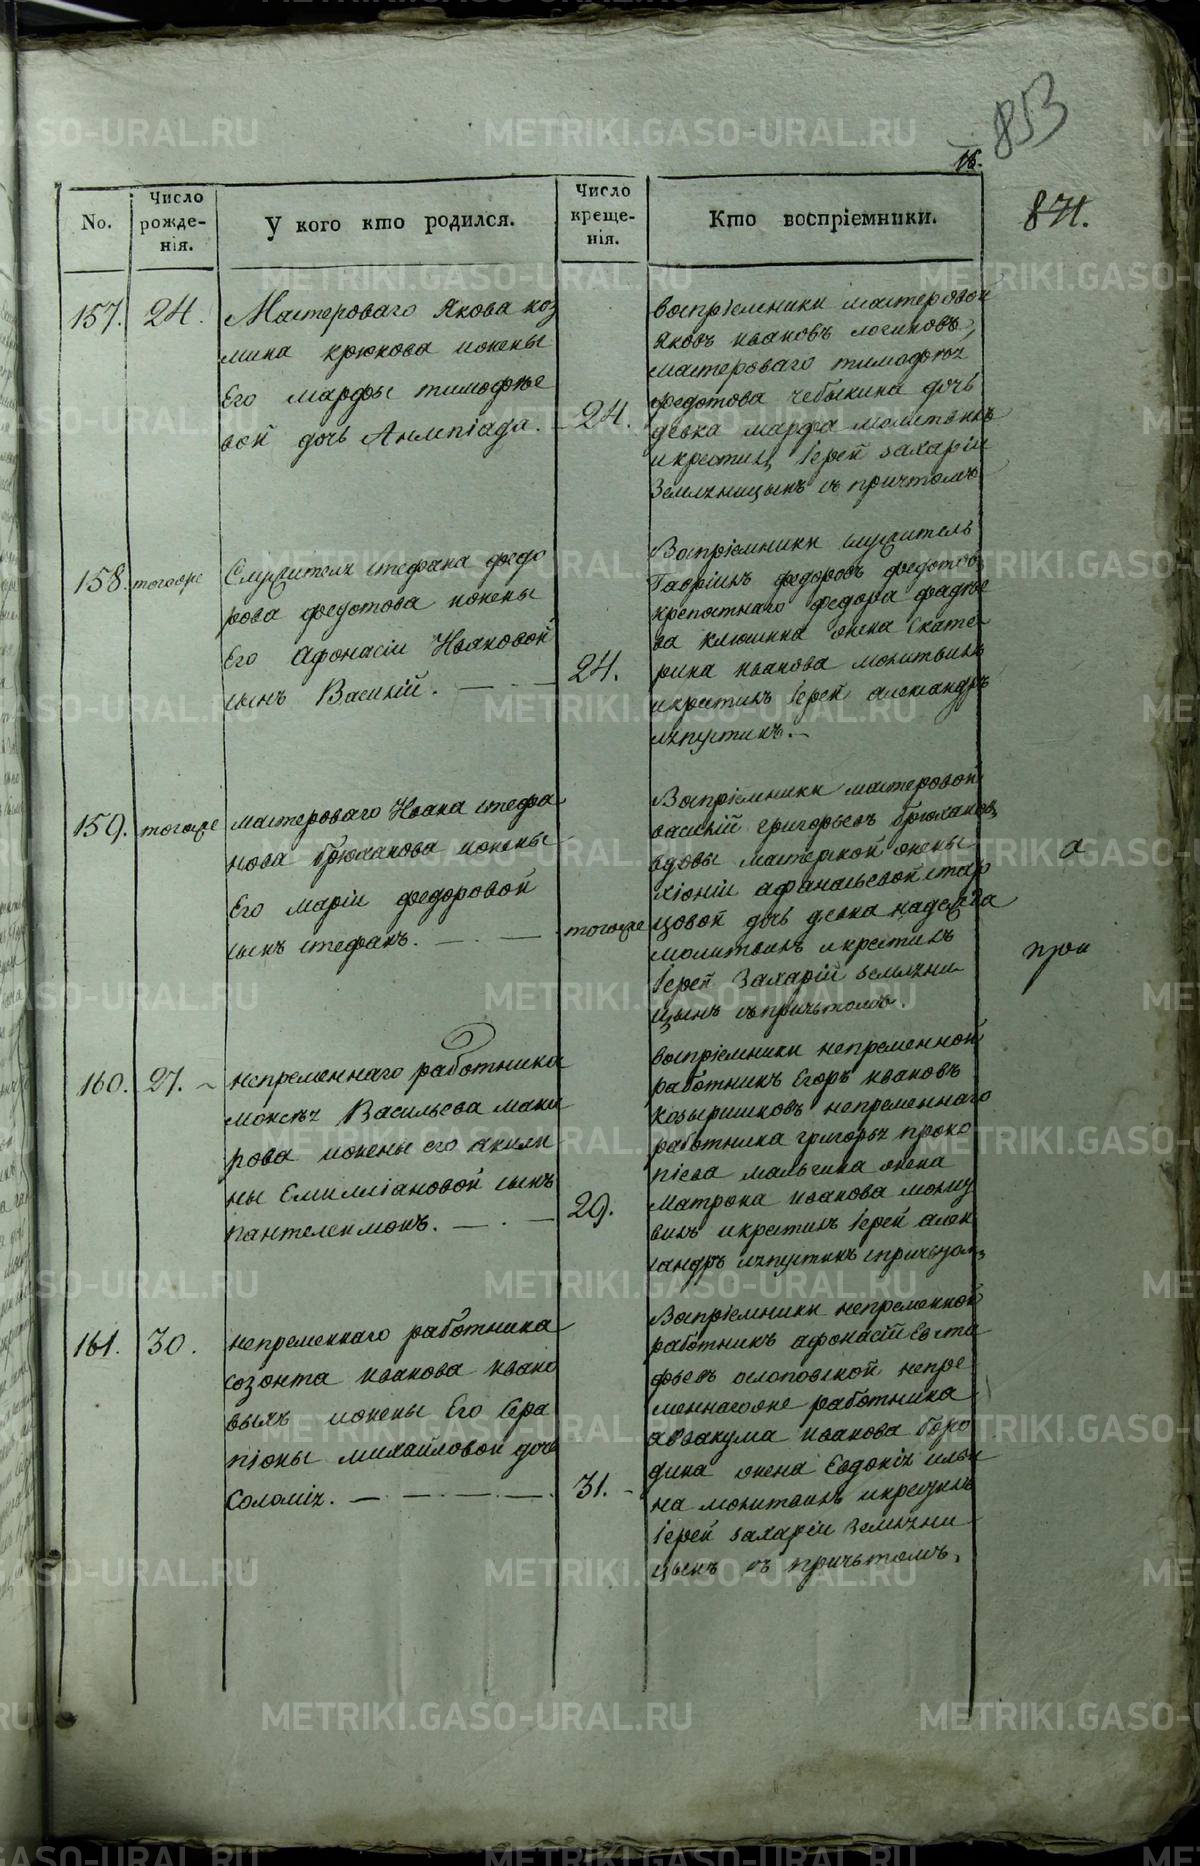 853
16.
871.
No.
Число рожде-нія.
У кого кто родился.
Число креще-нія.
Кто воспріемники.
157.
24.
Мастероваго Якова коз
мина крюкова ижены
Его марфы тимофѣе
вой дочь Анмпіада.
24.
воспріемники мастеровой
Яковъ ивановъ логиновъ,
мастероваго тимофѣя
федотова чебыкина дочь
девка марфа молитвилъ
икрестил, Іерей захарій
Земляницынъ съ притчомъ
158.
тогоже
Служителя стефана федо
рова федотова ижены
Его Афонасіи Ивановой
сынъ Василій.
24.
Воспріемники служитель
Гавріилъ федоровъ федотов,
крепостнаго федора фадѣе
ва клюшина жена Екате-
рина иванова молитвилъ
икрестилъ Іерей александръ
ляпустинъ.
159.
тогоже
мастероваго Ивана стефа
нова брюханова ижены
Его маріи федоровой
сынъ стефанъ.
тогоже
Воспріемники мастеровой
василій григорьевъ брюханов,
вдовы мастерской жены
хіоніи афанасьевой стар
цовой дочь девка надежда
молитвилъ икрестилъ
Іерей Захарій земляни
цынъ съпричьтомъ.
160.
27.
непременнаго работника
моисѣя Васильева мака
рова ижены его акили
ны Емилліановой сынъ
пантелеимонъ.
29.
воспріемники непременной
работникъ Егоръ ивановъ
козыришковъ непременнаго
работника григорья проко
піева мальгина жена
матрона иванова молит
вилъ икрестилъ Іерей алек
сандръ ляпустинъ спричьтом,
161.
30.
непременнаго работника
созонта иванова ивано
выхъ ижены Его Сера
піоны михайловой дочь
Соломія.
31.
Воспріемники непременной
работникъ афонасій Евста
фьевъ ослоповской непре
меннагоже работника
аввакума иванова боро
дина жена Евдокія ильи
на молитвилъ икрестилъ
Іерей захарій Земляни
цынъ съ причьтомъ.
METRIKI.GASO-URAL.RU